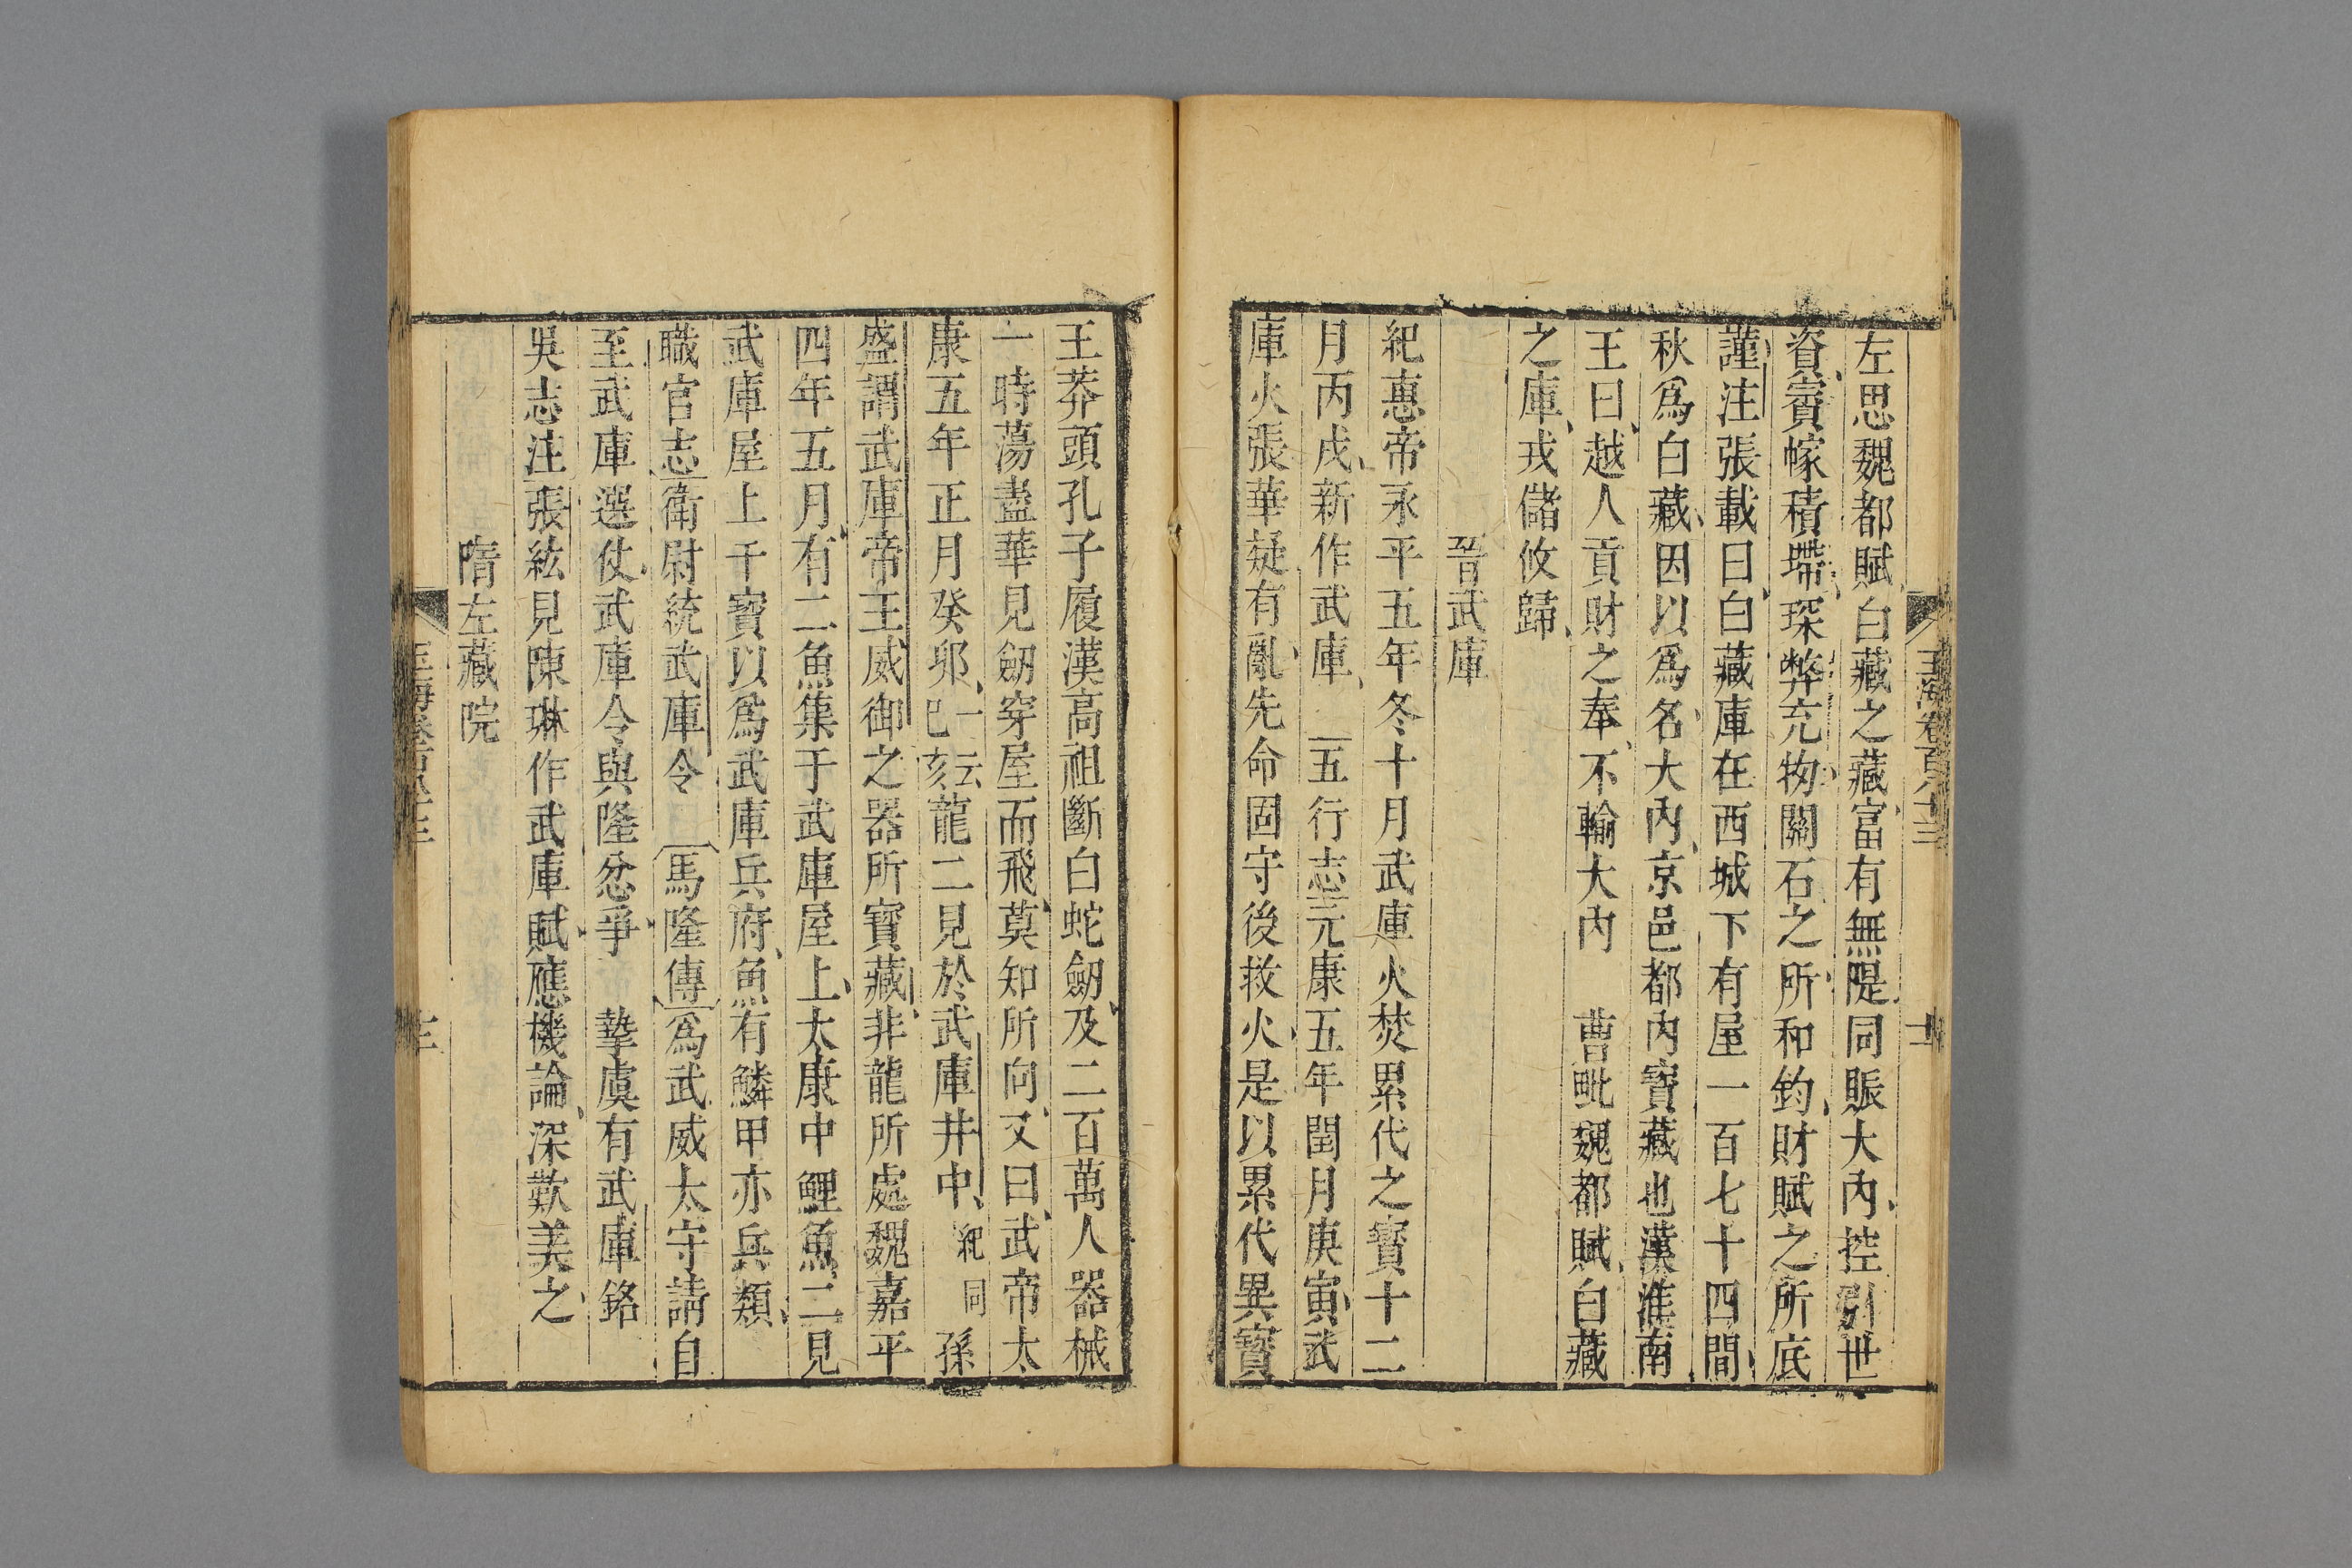 玉海卷百八十三
十一
左思魏都賦白藏之藏富有無隄同賑大內控引世
資賨幏積㙻琛弊充牣關石之所和鈞財賦之所底
謹注張載曰白藏庫在西城下有屋一百七十四間
秋爲白藏因以爲名大內京邑都內寶藏也漢淮南
王曰越人貢財之奉不輸大內 曹毗魏都賦白藏
之庫戎儲攸歸
晉武庫
紀惠帝永平五年冬十月武庫火焚累代之寶十二
月丙戌新作武庫 五行志元康五年閏月庚寅武
庫火張華疑有亂先命固守後救火是以累代異寶
王莽頭孔子履漢高祖斷白蛇劒及二百萬人器械
一時蕩盡華見劒穿屋而飛莫知所向又曰武帝太
康五年正月癸卯一云己亥龍二見於武庫井中紀同 孫
盛謂武庫帝王威御之器所寶藏非龍所處魏嘉平
四年五月有二魚集于武庫屋上太康中鯉魚二見
武庫屋上干寶以爲武庫兵府魚有鱗甲亦兵類
職官志衛尉統武庫令 馬隆傳爲武威太守請自
至武庫選仗武庫令與隆忿爭 摯虞有武庫銘
吳志注張紘見陳琳作武庫賦應機論深歎美之
隋左藏院